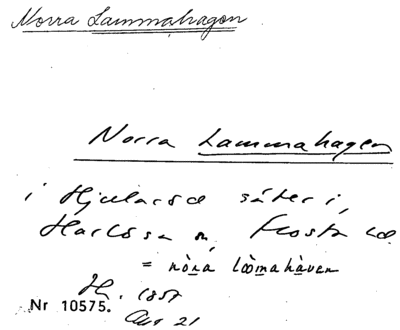 Norra Lammahagen
Norra Lammahagen
i Hjularöd säteri,
Harlösa sn, Frosta hd.
= nòra lòòmahàven
1857
Nr 10575.
Aug 21